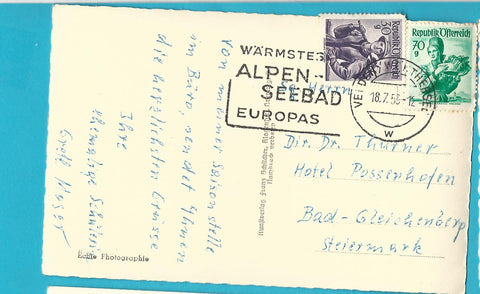 Von meiner Saisonstelle
im Büro sendet Ihnen
die herzlichsten Grüsse
Ihre
ehemalige Schülerin
Echte Photographie
WÄRMSTES
ALPEN-
SEEBAD
EUROPAS
VELDEN AM WÖRTHERSEE
18.7.55-12
w
30 g
Republik Österreich
Republik Österreich
70 g
Kunstverlag Franz Schilcher, Klagenfurt
Nachdruck verboten
Herrn
Dir. Dr. Thurner
Hotel Possenhofen
Bad-Gleichenberg
Steiermark